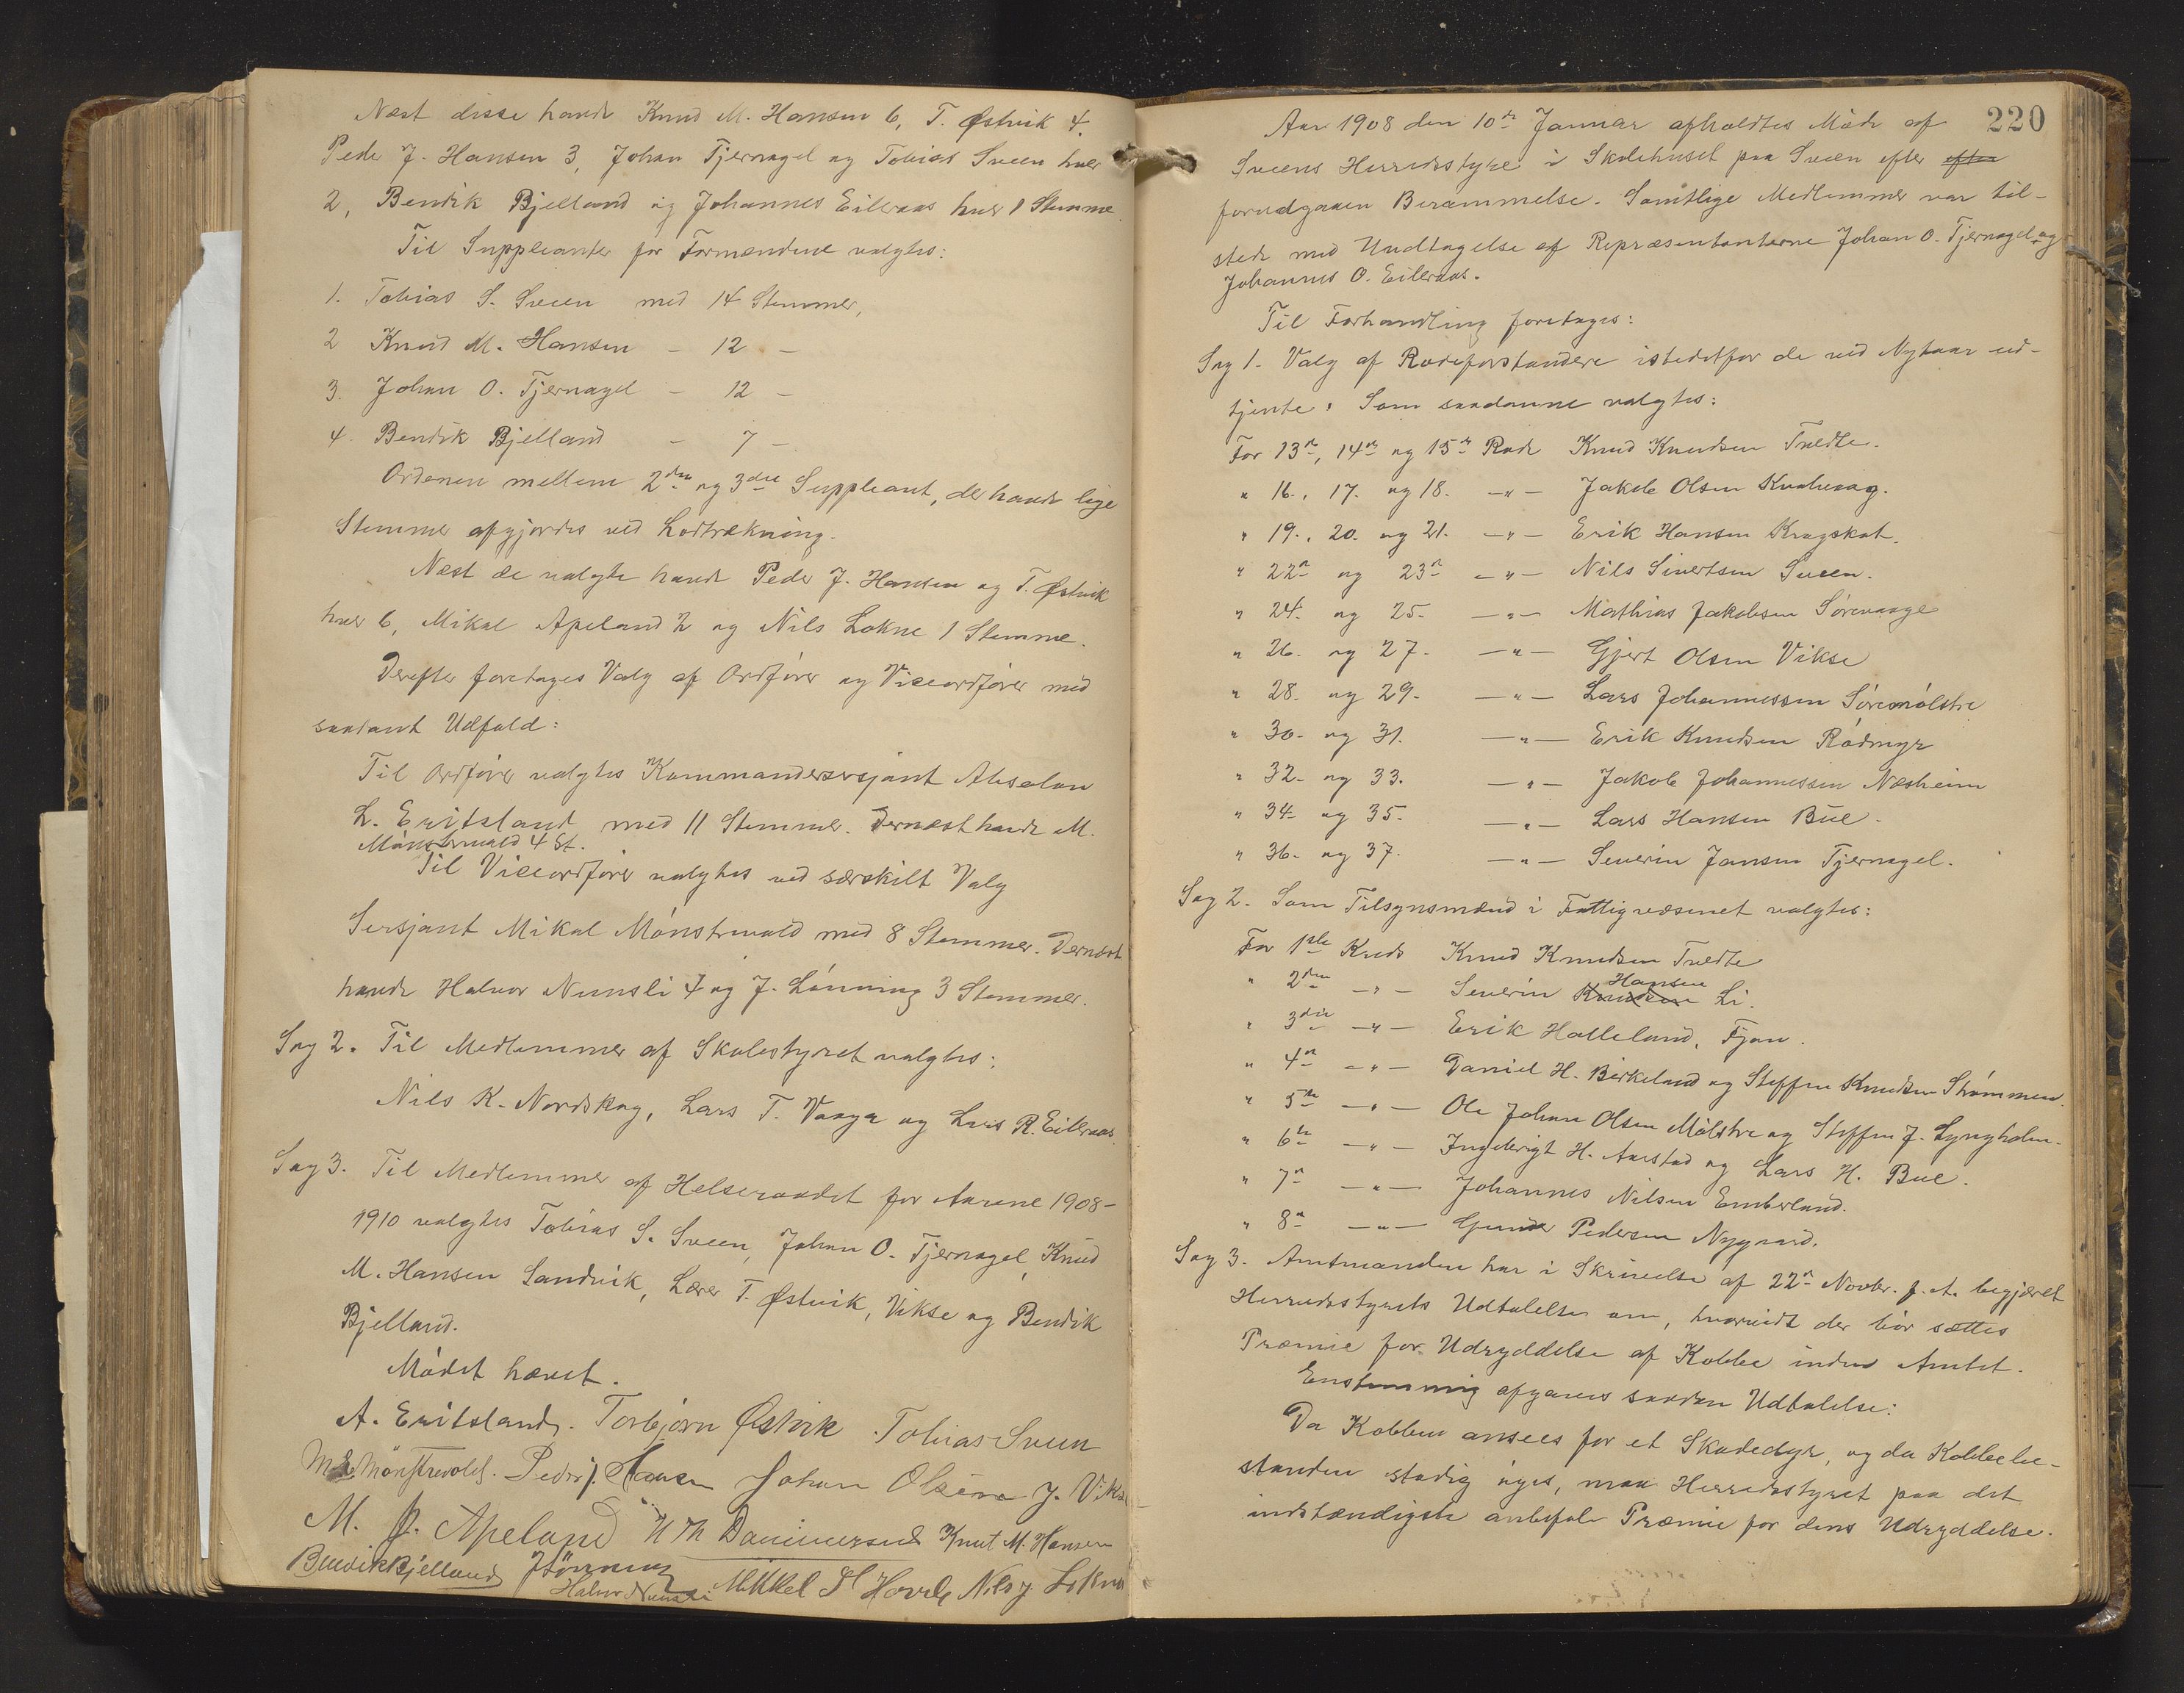 Næst disse havde Knud M. Hansen 6, T. Østvik 4,
Peder J. Hansen 3, Johan Tjernagel og Tobias Sveen hver
2, Bendik Bjelland og Johannes Eileraas hver 1 Stemme.
Til Suppleanter for Formændene valgtes:
1. Tobias S. Sveen med 14 Stemmer,
2 Knud M. Hansen - 12 -
3. Johan O. Tjernagel - 12 -
4. Bendik Bjelland - 7 -
Ordenen mellem 2den og 3die Suppleant, der havde lige
Stemmer afgjordes ved Lodtrækning.
Næst de valgte havde Peder J. Hansen og T. Østvik
hver 6, Mikal Apeland 2 og Nils Lokne 1 Stemme.
Derefter foretages Valg af Ordfører og Viceordfører med
saadant Udfald:
Til Ordfører valgtes Kommandersersjant Absalon
L. Emitsland med 11 Stemmer. Dernæst havde M.
Mønstrevald 4 St.
Til Viceordfører valgtes ved særskilt Valg
Sersjant Mikal Mønstrevald med 8 Stemmer. Dernæst
havde Halvor Nunsli 4 og J. Lønning 3 Stemmer.
Sag 2. Til Medlemmer af Skolestyret valgtes:
Nils K. Nordskog, Lars T. Vaaga og Lars R. Eileraas.
Sag 3. Til Medlemmer af Helseraadet for Aarene 1908-
1910 valgtes Tobias S. Sveen, Johan O. Tjernagel, Knud
M. Hansen Sandvik, Lærer T. Østvik, Vikse og Bendik
Bjelland.
Mødet hævet.
A. Emitsland. Torbjørn Østvik Tobias Sveen
Mønstrevold. Peder J. Hansen Johan Olsen J. Vikse
M. J. Apeland Knut M. Hansen
Bendik Bjelland J Lønning
Halvor Nunsli Mikkel Hovda Nils J Lokna
220
Aar 1908 den 10de Januar afholdtes Møde af
Sveens Herredsstyre i Skolehuset paa Sveen efter efter
forudgaaen Berammelse. Samtlige Medlemmer var til-
stede med Undtagelse af Repræsentanterne Johan O. Tjernagel og
Johannes O. Eileraas.
Til Forhandling foretages:
Sag 1. Valg af Rodeforstandere istedetfor de ved Nytaar ud-
tjente. Som saadanne valgtes:
For 13de, 14de og 15de Rode Knud Knudsen Tvedte.
" 16., 17. og 18. -"- Jakob Olsen Kvalevaag.
" 19., 20. og 21. -"- Erik Hansen Kragskot.
" 22de og 23de -"- Nils Sivertsen Sveen.
" 24. og 25. -"- Mathias Jakobsen Sørevaage
" 26. og 27. -"- Gjert Olsen Vikse
" 28. og 29. -"- Lars Johannessen Søremølstre
" 30. og 31. -"- Erik Knudsen Rødmyr
" 32. og 33. -"- Jakob Johannessen Næsheim
" 34. og 35. -"- Lars Hansen Bue.
" 36. og 37. -"- Severin Jansen Tjernagel.
Sag 2. Som Tilsynsmænd i Fattigvæsenet valgtes:
For 1ste Kreds Knud Knudsen Tvedte
" 2den -"- Severin Knudsen Hansen Li.
" 3die -"- Erik Halleland, Fjon.
" 4de -"- Daniel H. Birkeland og Steffen Knudsen Strømmen.
" 5te -"- Ole Johan Olsen Mølstre og Steffen J. Lyngholm.
" 6te -"- Ingebrigt H. Aarstad og Lars H. Bue.
" 7de -"- Johannes Nilsen Emberland.
" 8de -"- Gunder Pedersen Nygaard.
Sag 3. Amtmanden har i Skrivelse af 22de Novbr. f. A. begjæret
Herredsstyrets Udtalelse om, hvorvidt der bør sættes
Præmie for Udryddelse af Kobbe inden Amtet.
Enstemmig afgaves saadan Udtalelse:
Da Kobben ansees for et Skadedyr, og da Kobbebe-
standen stadig øges, maa Herredsstyret paa det
indstændigste anbefale Præmie for dens Udryddelse.